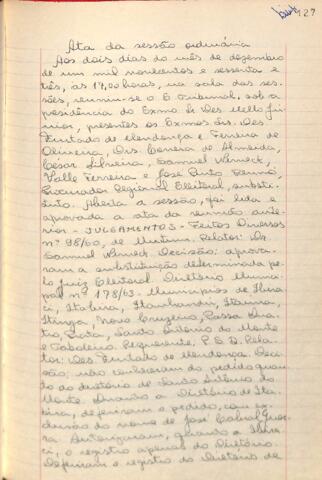 127
Ata da sessão ordinária
Aos dois dias do mês de dezembro
de um mil novecentos e sessenta e
três, às 17,00 horas, na sala das ses-
sões, reuniu-se o E. Tribunal, sob a
presidência do Exmo Sr. Des. Mello Jú-
nior, presentes os Exmos Srs. Des.
Furtado de Mendonça e Ferreira de
Oliveira, Drs. Correia de Almeida,
César Silveira, Samuel Werneck,
Valle Ferreira e José Pinto
Procurador Regional Eleitoral, substi-
tuto. Aberta a sessão, foi lida e
aprovada a ata da reunião ante-
rior - JULGAMENTOS - Feitos Diversos
nº 98/60, de Mutum. Relator: Dr.
Samuel Werneck. Decisão: aprova-
ram a substituição determinada pe-
lo Juiz Eleitoral. Diretório Munici-
pal nº 178/63. Municípios de
Itabira, Itanhandu, Itaúna,
Itinga, Novo Cruzeiro, Passa Qua-
tro, Prata, Santo Antônio do Monte
e Taboleiro. Requerente, P.S.D. Rela-
tor: Des. Furtado de Mendonça. Deci-
são: não conheceram do pedido quan-
to ao diretório de Santo Antônio do
Monte. Quanto a Diretório de Ita-
bira, deferiram o pedido, com ex-
clusão do nome de José Cabral
Autorizaram, quanto a
o registro apenas do Diretório.
Deferiram o registro do Diretório de